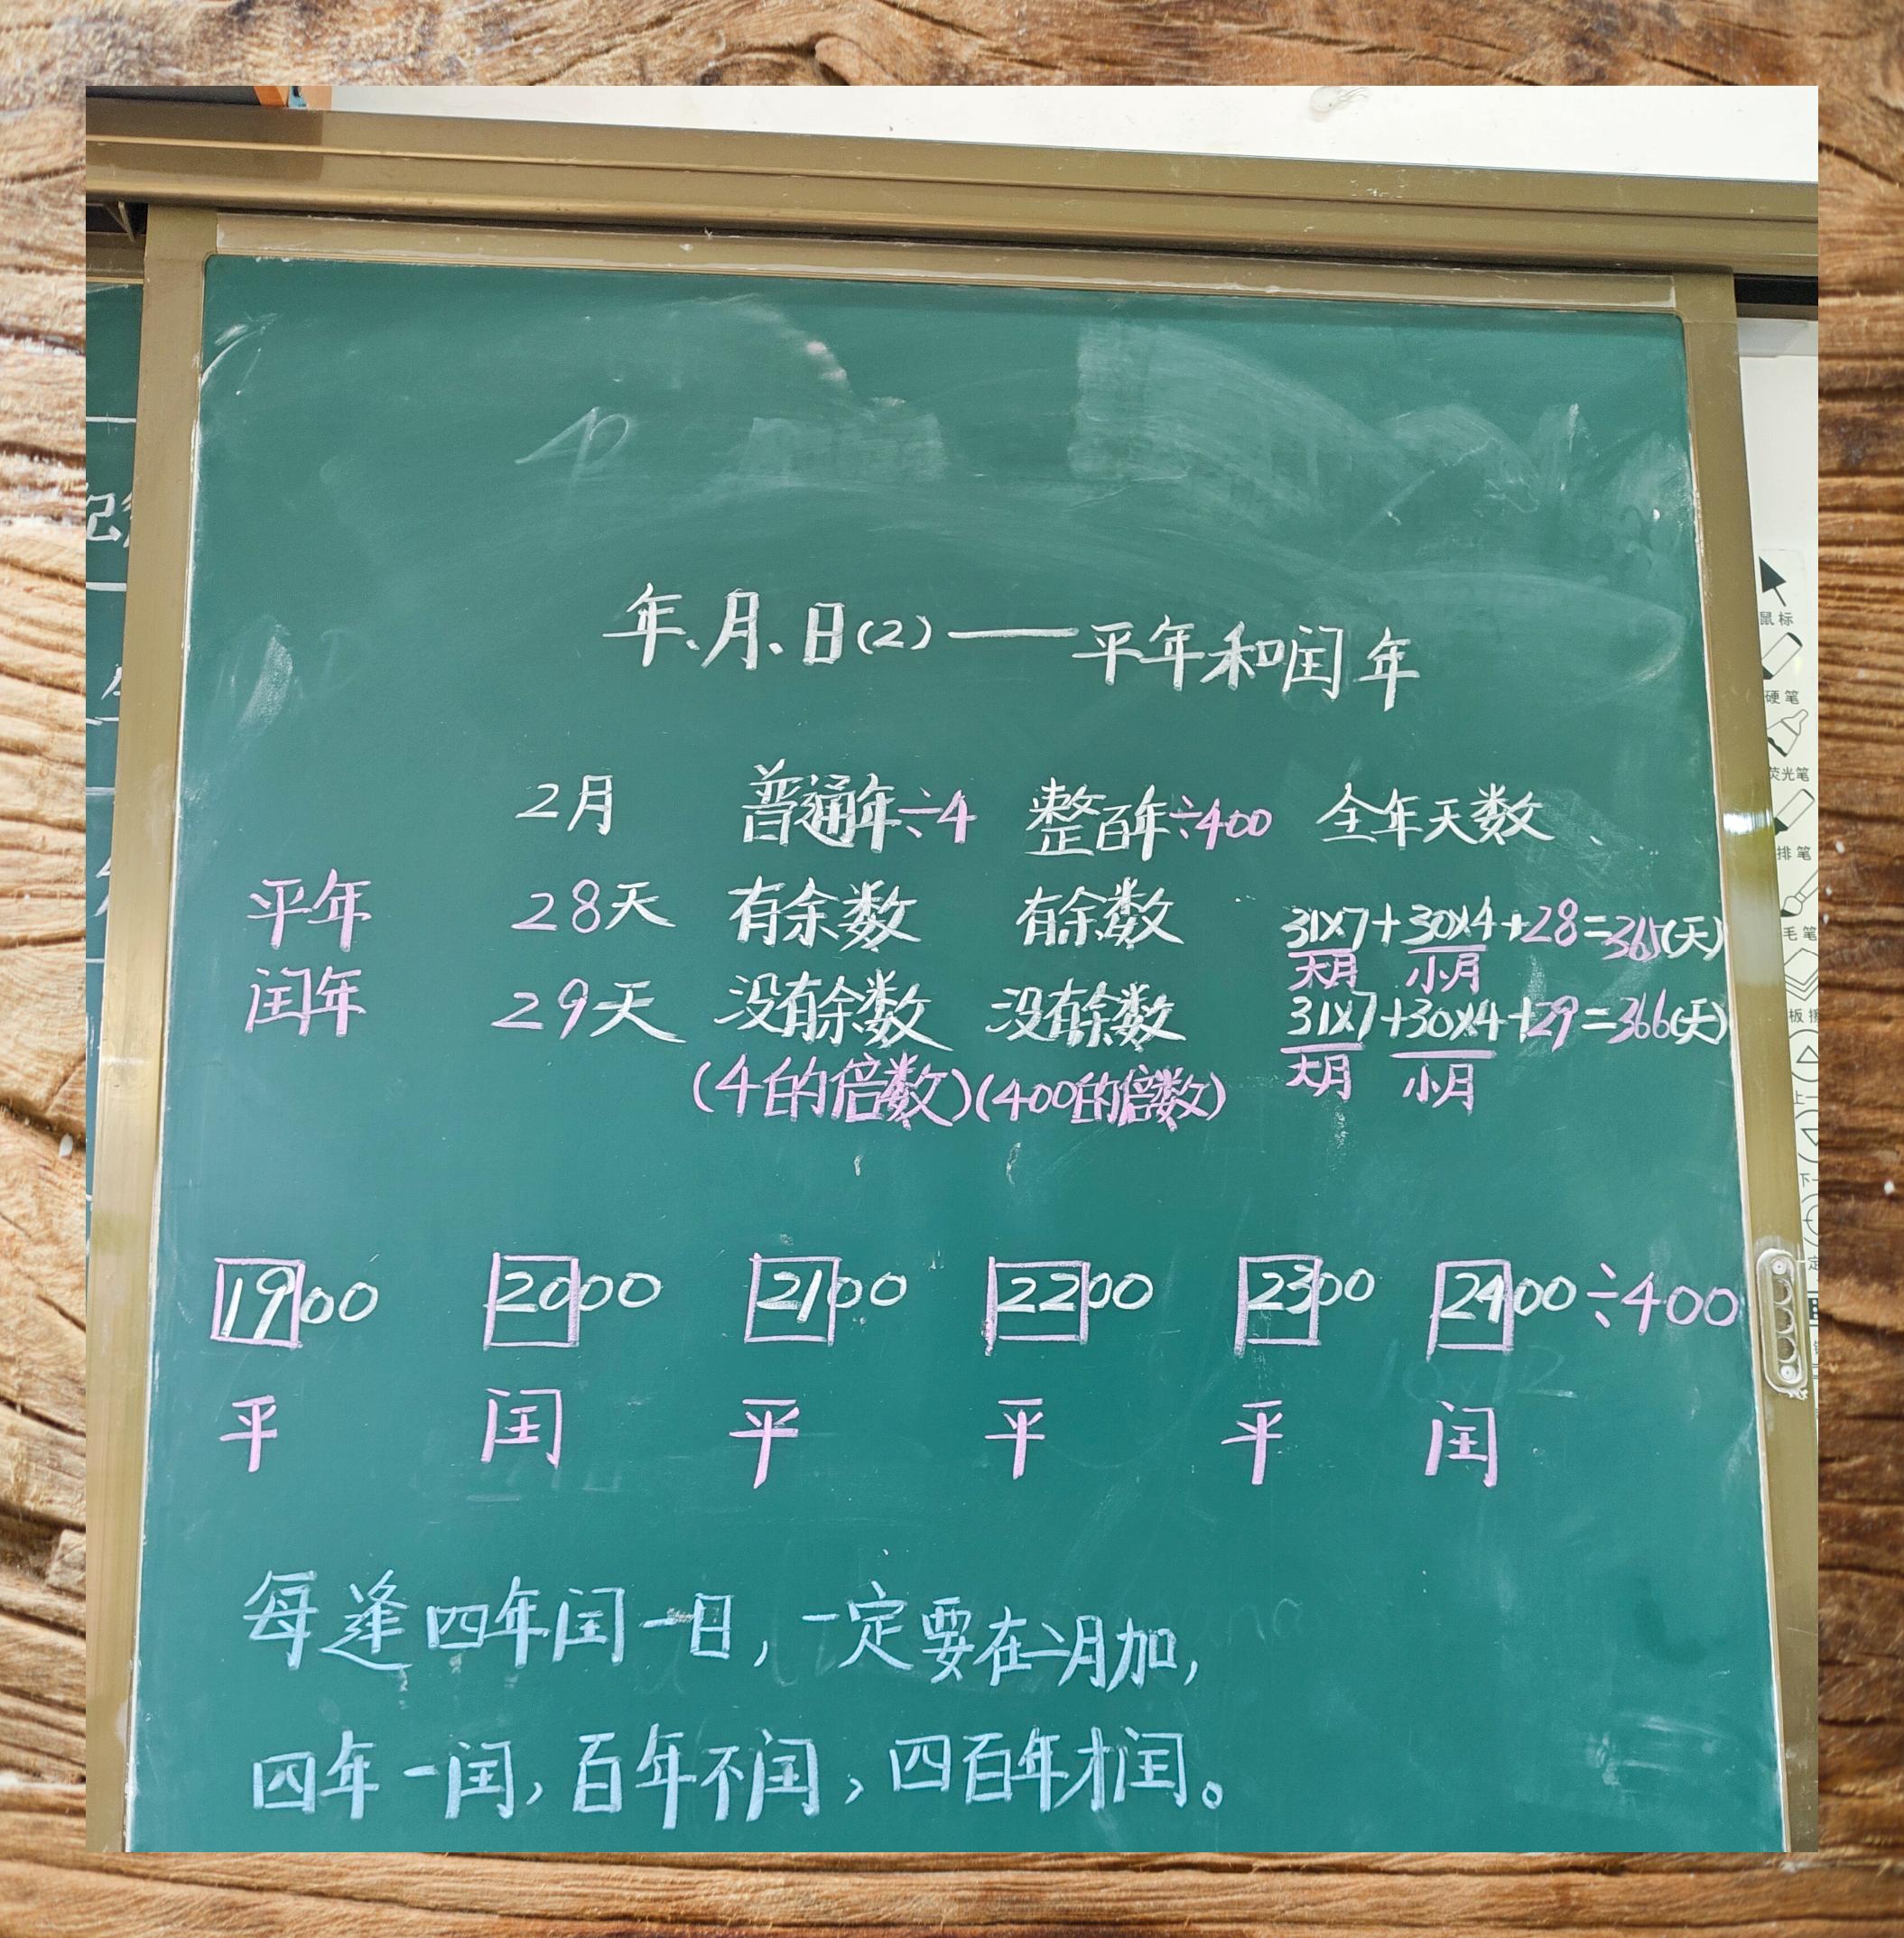 年、月、日(2)——平年和闰年
2月 普通年÷4 整百年÷400 全年天数
平年 28天 有余数 有余数 31×7+30×4+28=365(天)
大月 小月
闰年 29天 没有余数 没有余数 31×7+30×4+29=366(天)
(4的倍数) (400的倍数) 大月 小月
1900 2000 2100 2200 2300 2400÷400
平 闰 平 平 平 闰
每逢四年闰一日,一定要在二月加,
四年一闰,百年不闰,四百年才闰。
鼠标
硬笔
荧光笔
排笔
毛笔